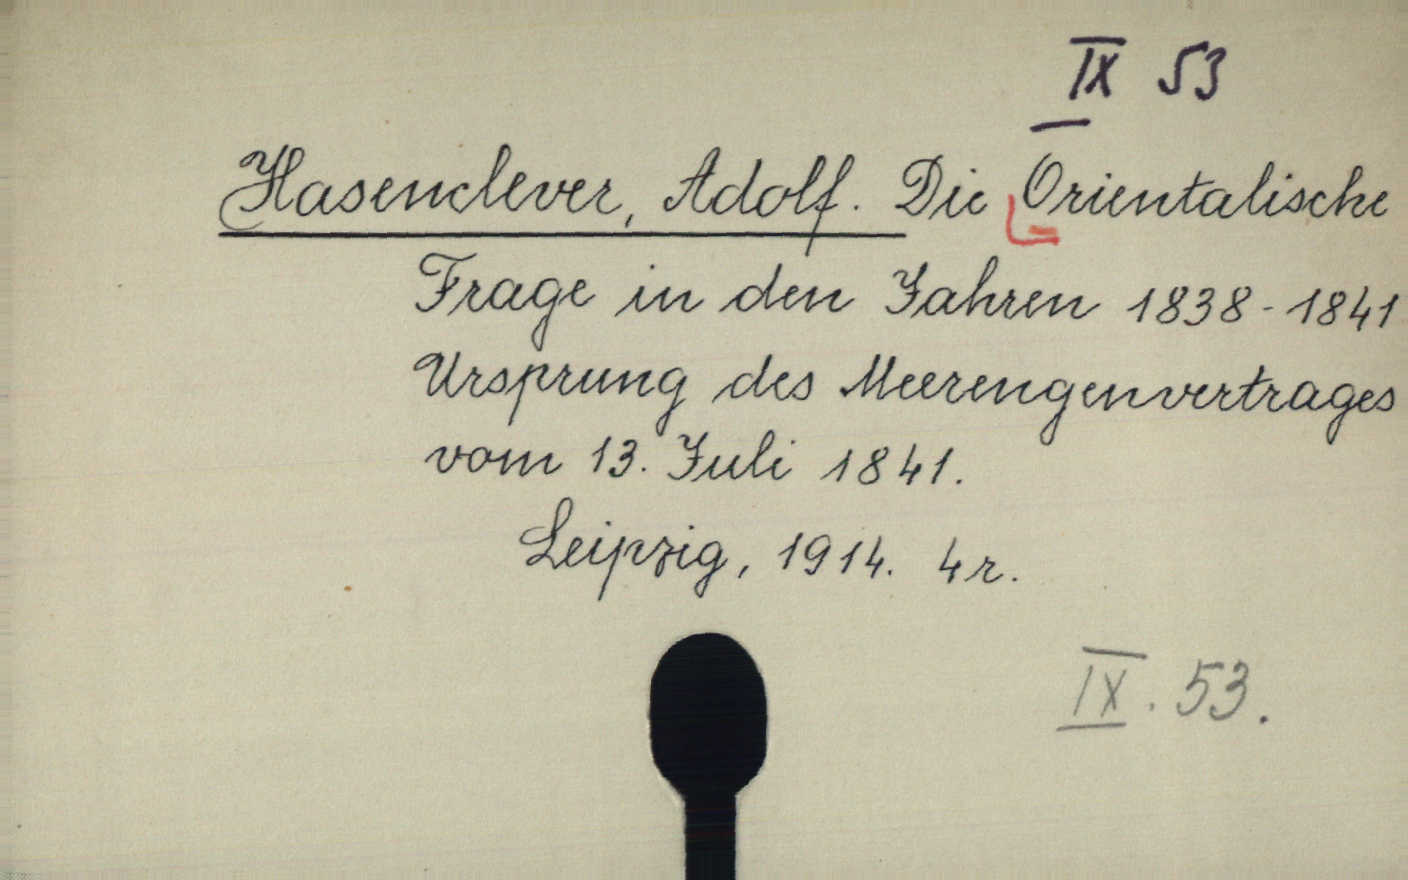 IX 53
Hasenclever, Adolf. Die Orientalische
Frage in den Jahren 1838-1841
Ursprung des Meerengenvertrages
vom 13. Juli 1841.
Leipzig, 1914. 4r.
IX. 53.